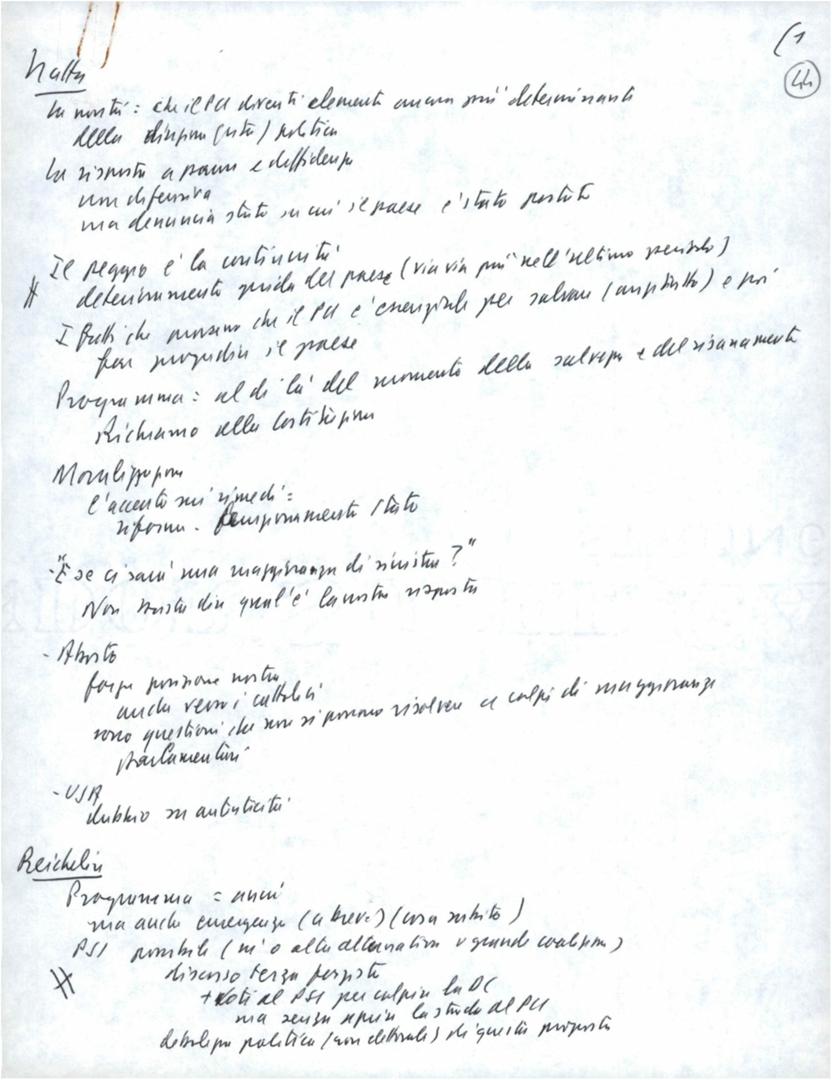 (1
44
Natta
La novità: che il PCI diventi elemento ancora più determinante
della direzione (vita) politica
La risposta a paure e diffidenze
non difensiva
ma denuncia stato in cui il paese è stato portato
Il peggio è la continuità
deterioramento guida del paese (via via più nell'ultimo periodo)
I fatti che provano che il PCI è essenziale per salvare (anzitutto) e poi
far progredire il paese
Programma: al di là del momento della salvezza e del risanamento
Richiamo alla Costituzione
Moralizzazione
l'accento sui rimedi:
riforma - funzionamento Stato
- "E se ci sarà una maggioranza di sinistra?"
Non basta dire qual'è la nostra risposta
- Aborto
forza posizione nostra
anche verso i cattolici
sono questioni che non si possono risolvere a colpi di maggioranze
parlamentari
- USA
dubbio su autenticità
Reichlin
Programma = anni
ma anche emergenza (a breve) (cosa subito)
PSI possibile (ni' o alla alternativa o grande coalizione)
discorso terza forzista
+ voti al PSI per colpire la DC
ma senza aprire la strada al PCI
debolezza politica (non elettorale) di questa proposta